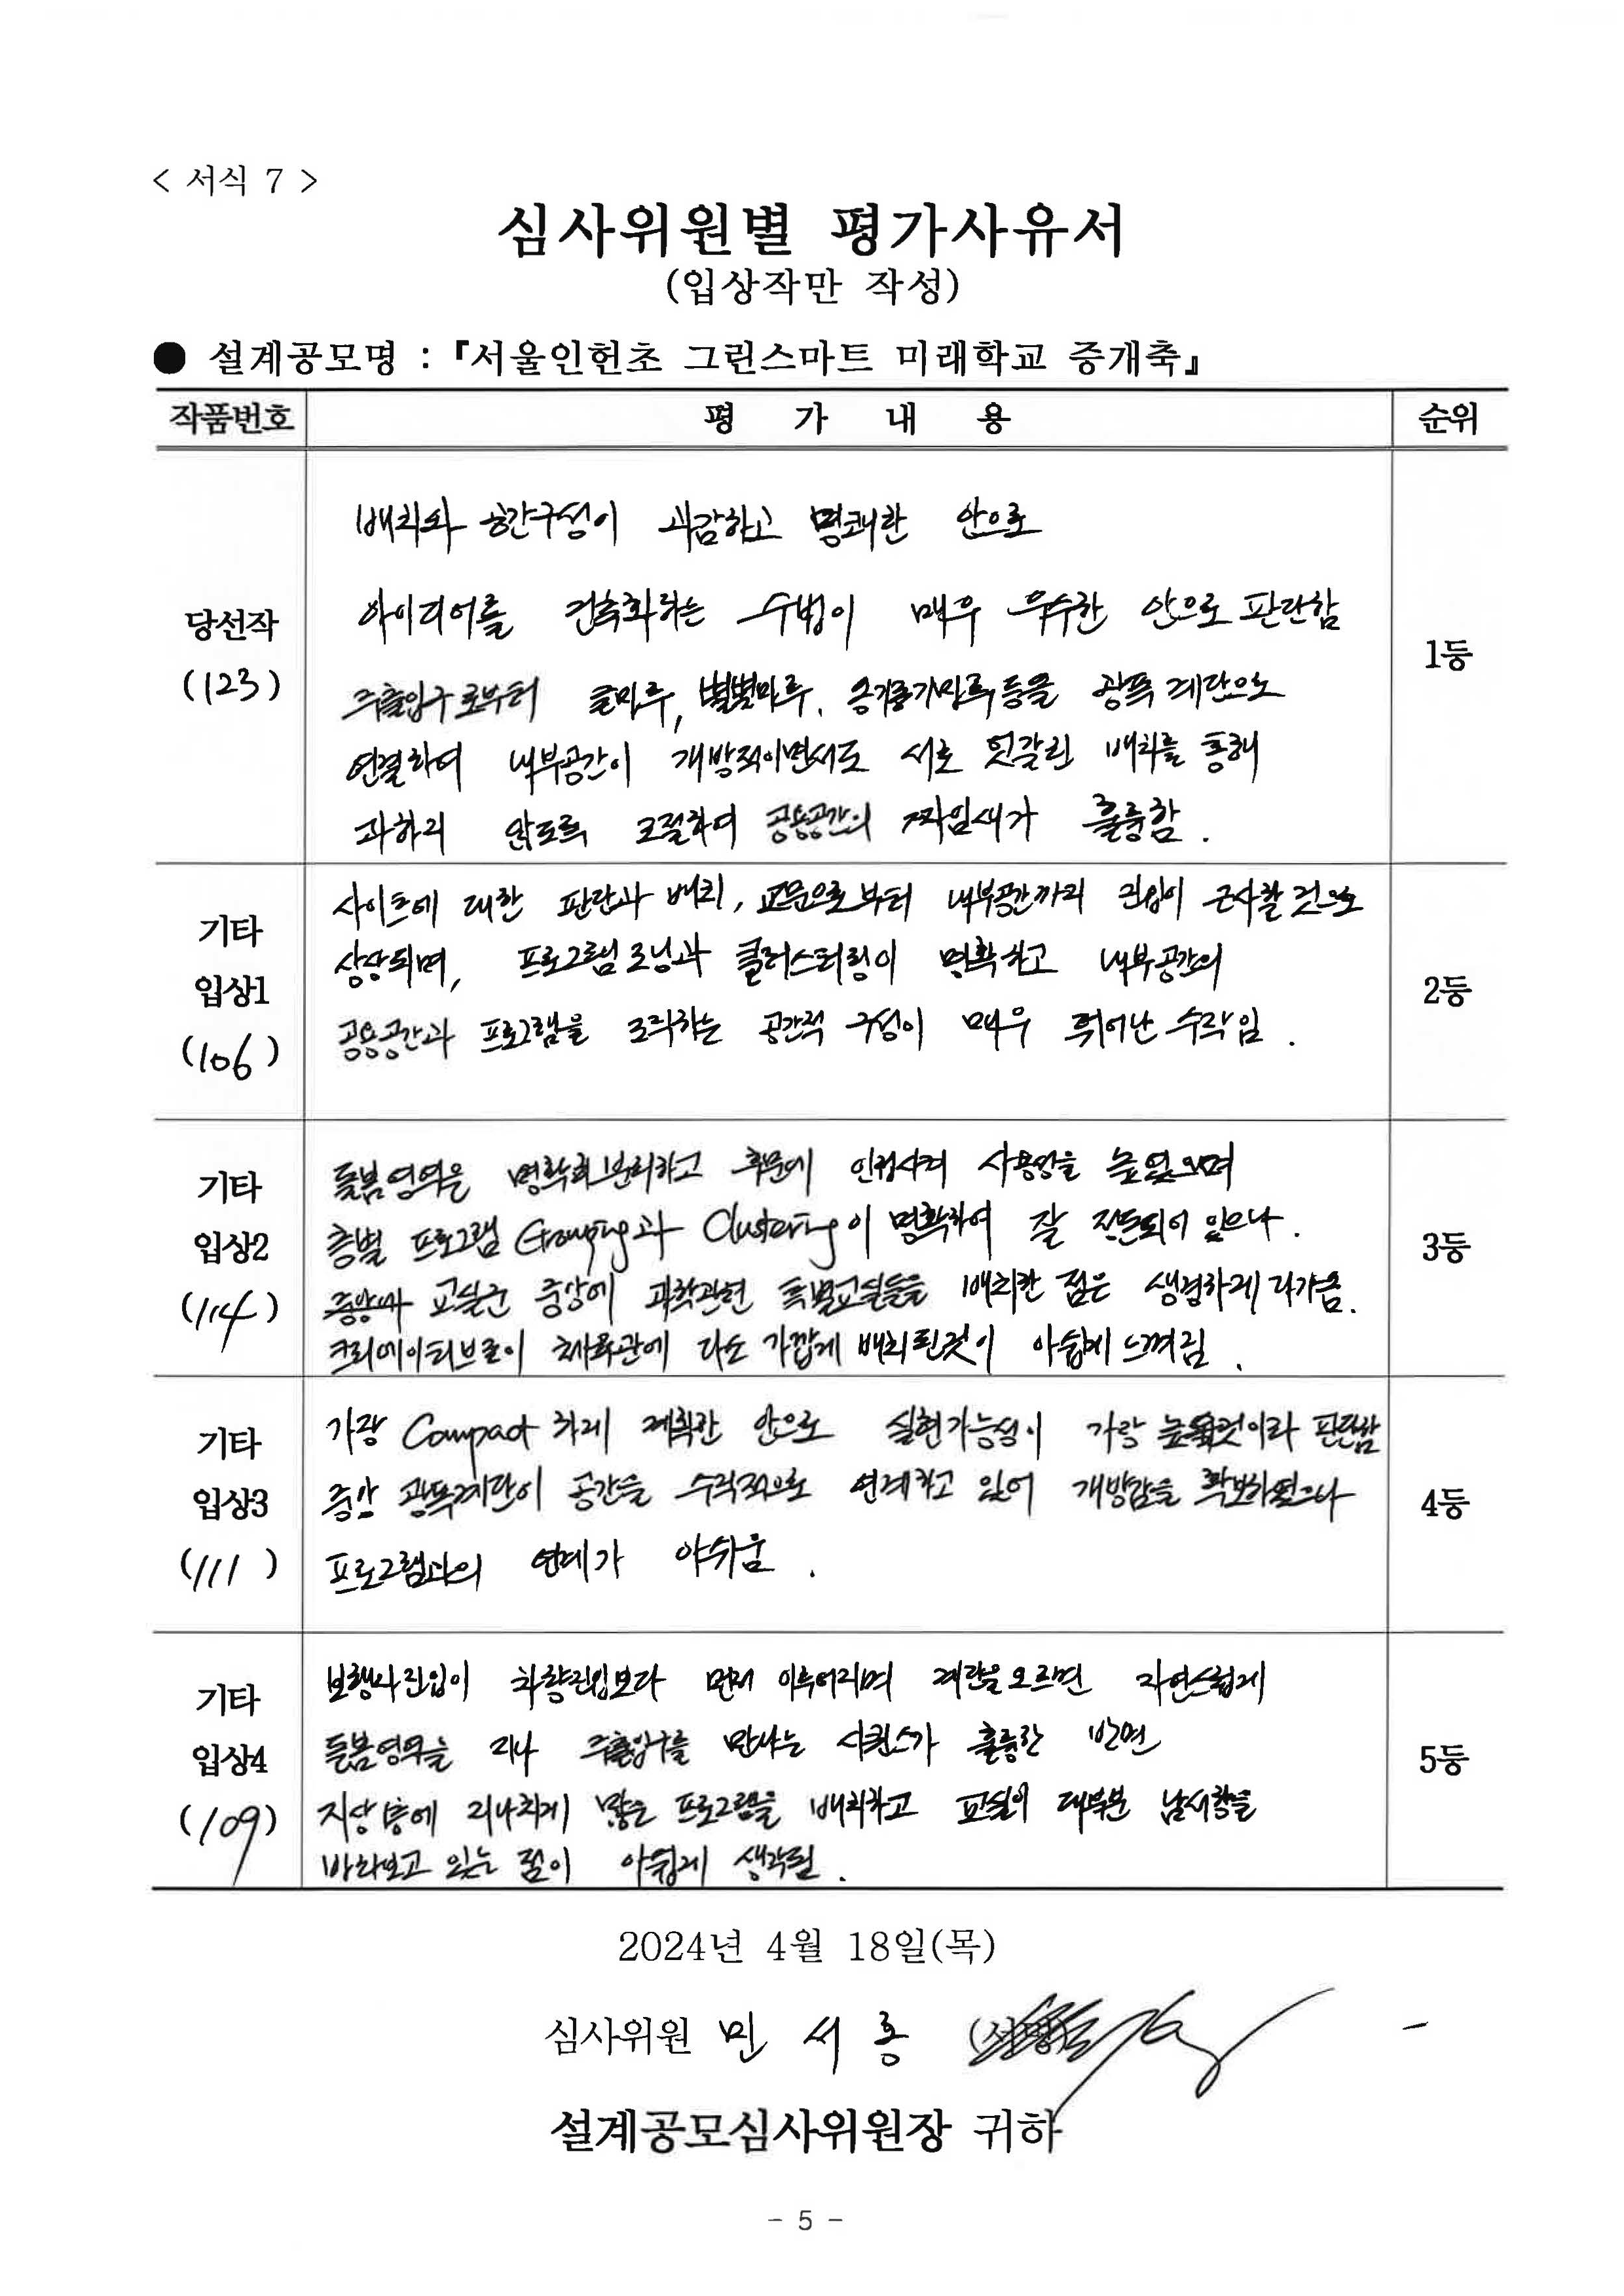 < 서식 7 >
심사위원별 평가사유서
(입상작만 작성)
● 설계공모명 : 『서울인헌초 그린스마트 미래학교 증개축』
작품번호 평 가 내 용 순위
당선작
(123)
배치와 공간구성이 과감하고 명쾌한 안으로
아이디어를 건축화하는 수법이 매우 우수한 안으로 판단함
주출입구로부터 글마루, 별별마루, 등을 광폭 계단으로
연결하여 내부공간이 개방적이면서도 서로 엇갈린 배치를 통해
과하지 않도록 조절하여 공용공간의 짜임새가 훌륭함.
1등
기타
입상1
(106)
사이트에 대한 판단과 배치, 교문으로부터 내부공간까지 진입이 근사할 것으로
상상되며, 프로그램 조닝과 클러스터링이 명확하고 내부공간의
공용공간과 프로그램을 조직하는 공간적 구성이 매우 뛰어난 수작임.
2등
기타
입상2
(114)
돌봄영역은 명확히 분리하고 후문에 인접시켜 사용성을 높였으며
층별 프로그램 Grouping과 Clustering이 명확하여 잘 정돈되어 있으나.
교실군 중앙에 과학관련 특별교실들을 배치한 점은 생경하게 다가옴.
크리에이티브존이 체육관에 다소 가깝게 배치된것이 아쉽게 느껴짐.
3등
기타
입상3
(111)
가장 Compact 하게 계획한 안으로 실현가능성이 가장 높을것이라 판단함
중앙 광폭계단이 공간을 수직적으로 연계하고 있어 개방감을 확보하였으나
프로그램과의 연계가 아쉬움.
4등
기타
입상4
(109)
보행자진입이 차량진입보다 먼저 이루어지며 계단을 오르면 자연스럽게
돌봄영역을 지나 주출입구를 만나는 시퀀스가 훌륭한 반면
지상1층에 지나치게 많은 프로그램을 배치하고 교실의 대부분 남서향을
바라보고 있는 점이 아쉽게 생각됨.
5등
2024년 4월 18일(목)
심사위원 민 서 홍 (서명)
설계공모심사위원장 귀하
- 5 -